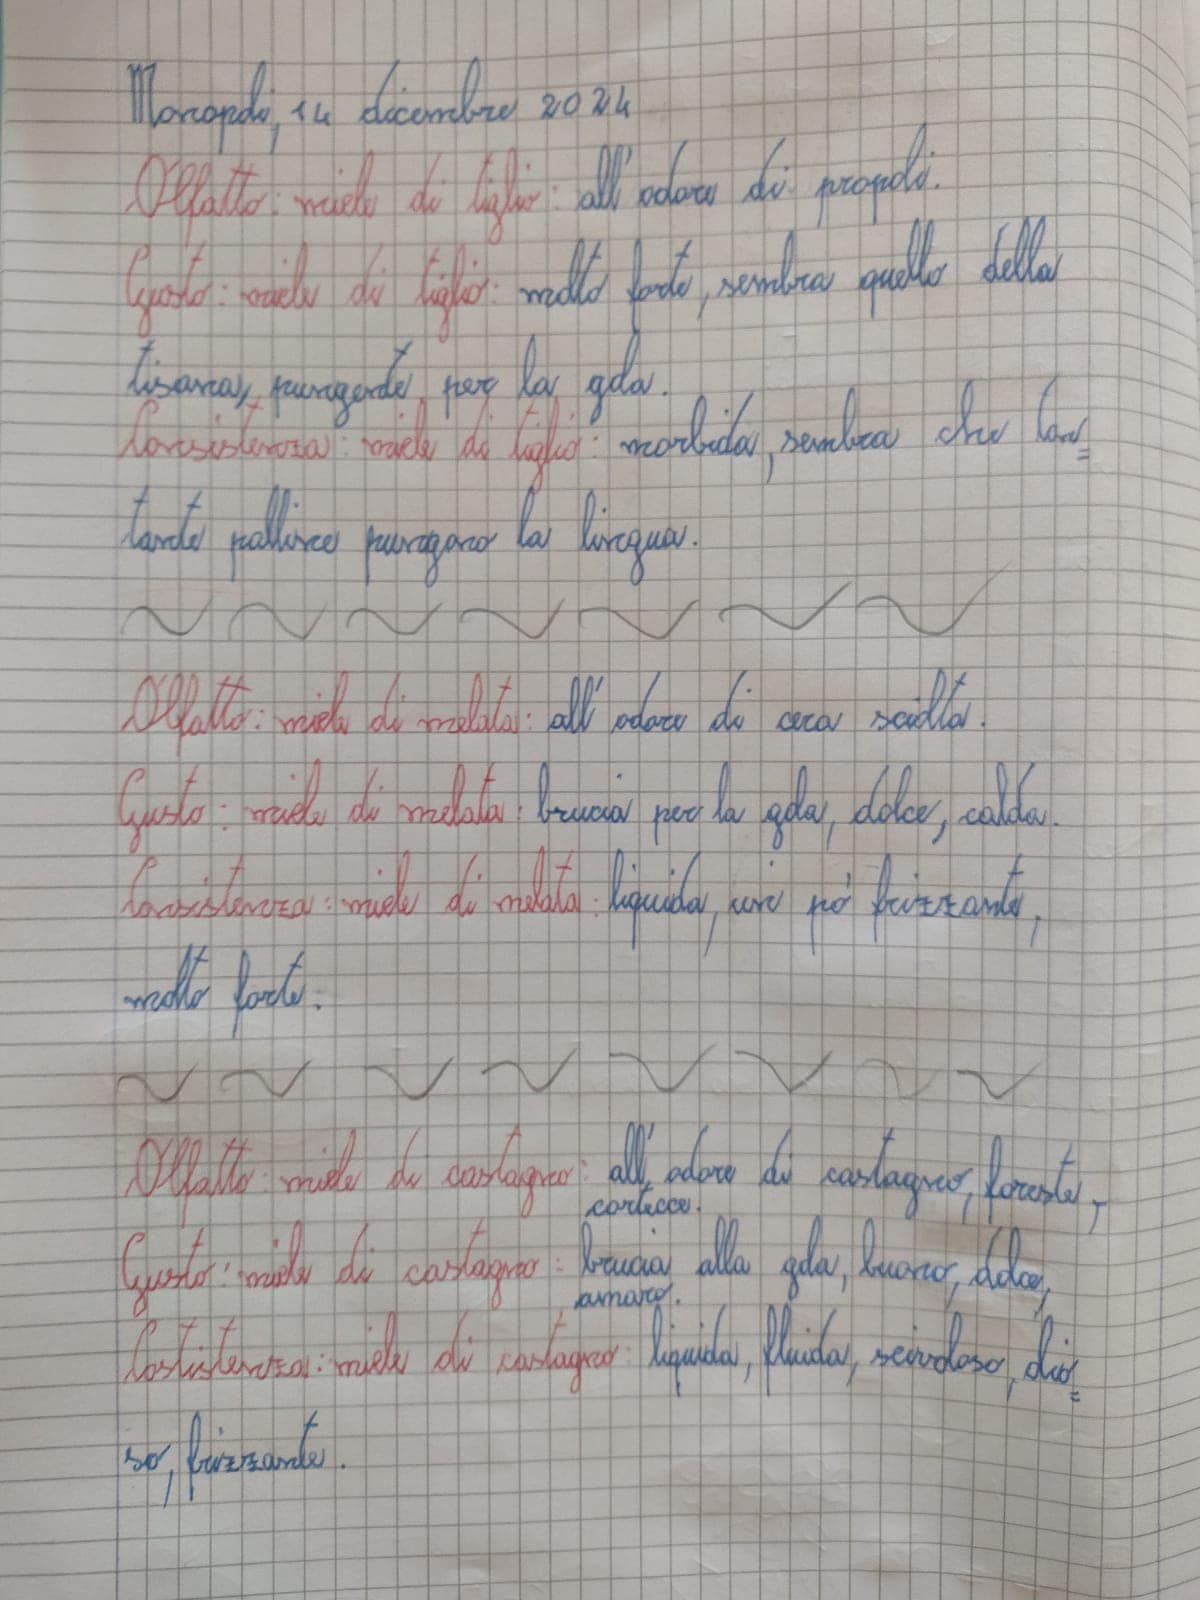 Monopoli, 14 dicembre 2024
Olfatto: miele di tiglio: all'odore di propoli.
Gusto: miele di tiglio: molto forte, sembra quello della
tisana, pungente per la gola.
Consistenza: miele di tiglio: morbida, sembra che tan=
tante palline pungano la lingua.
Olfatto: miele di melata: all'odore di cera sciolta.
Gusto: miele di melata: brucia per la gola, dolce, calda.
Consistenza: miele di melata: liquida, un pò frizzante,
molto forte.
Olfatto: miele di castagno: all'odore di castagno, foreste,
cortecce.
Gusto: miele di castagno: brucia alla gola, buono, dolce,
amaro.
Costistenza: miele di castagno: liquida, fluida, scivoloso, olio=
so, frizzante.